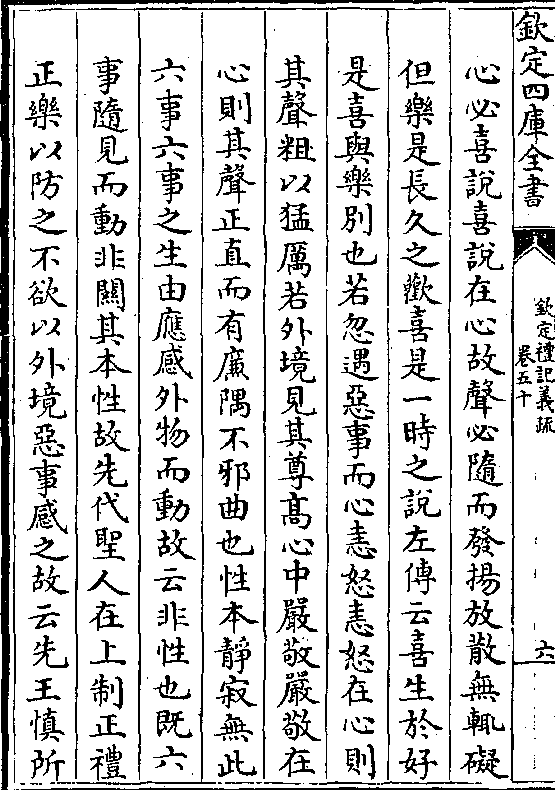 欽定四庫全書
欽定禮記義疏
卷五十
六
心必喜說喜說在心故聲必隨而發揚放散無輒礙
但樂是長久之歡喜是一時之說左傳云喜生於好
是喜與樂別也若忽遇惡事而心恚怒恚怒在心則
其聲粗以猛厲若外境見其尊高心中嚴敬嚴敬在
心則其聲正直而有廉隅不邪曲也性本靜寂無此
六事六事之生由應感外物而動故云非性也既六
事隨見而動非關其本性故先代聖人在上制正禮
正樂以防之不欲以外境惡事感之故云先王慎所